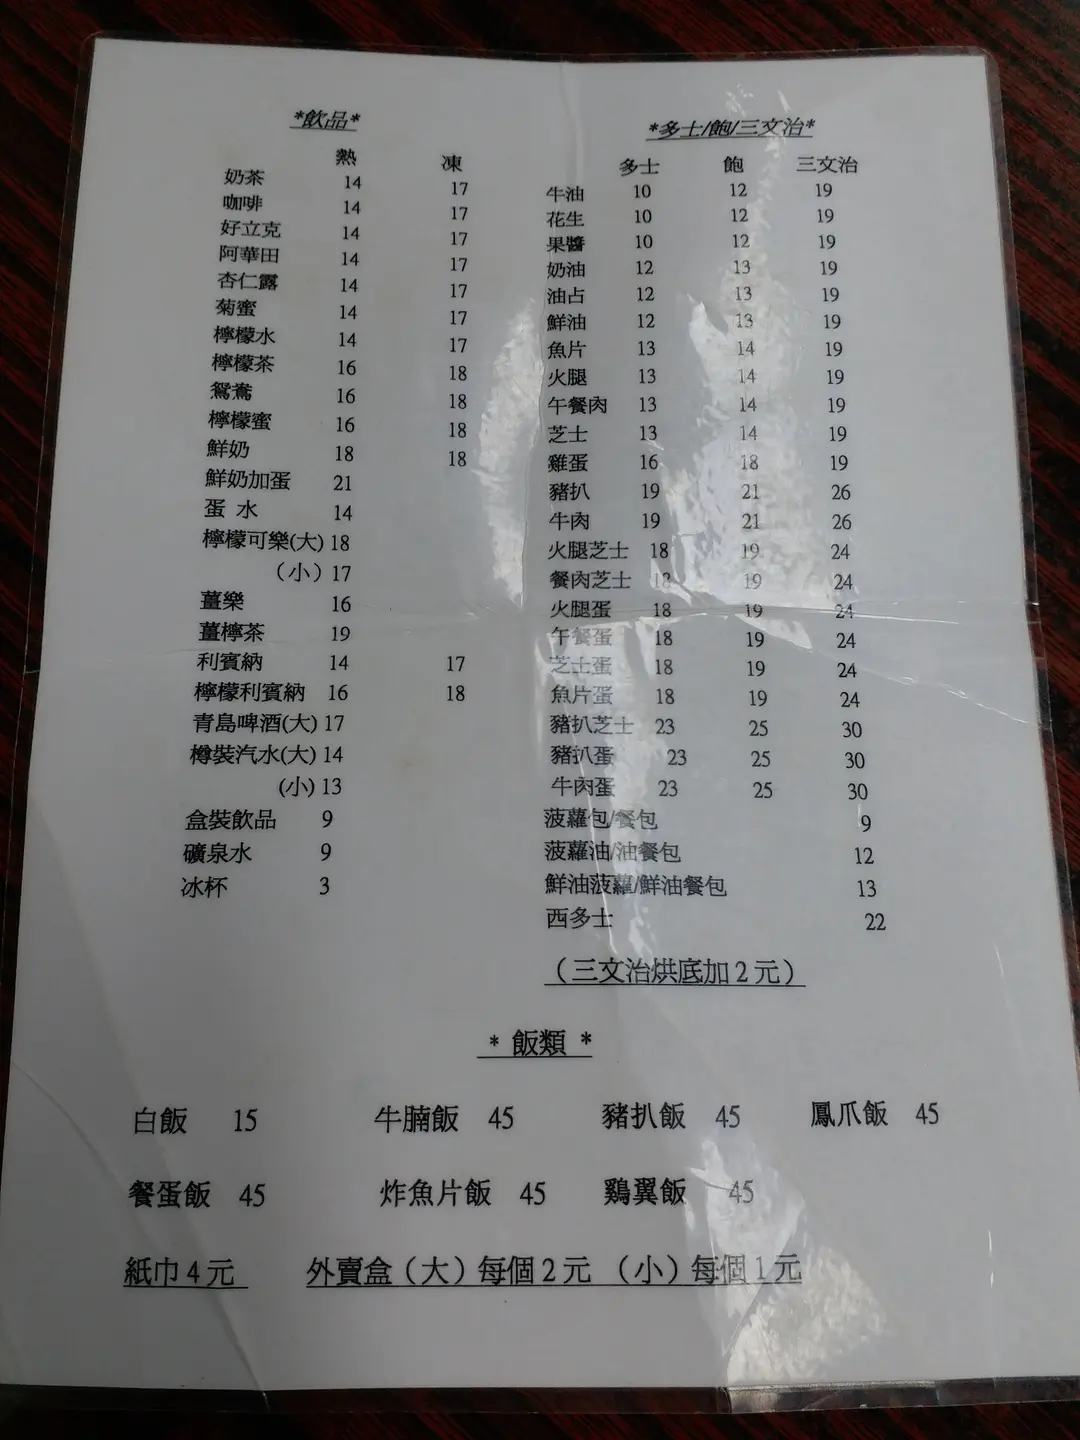 *飲品*
熱 凍
奶茶 14 17
咖啡 14 17
好立克 14 17
阿華田 14 17
杏仁露 14 17
菊蜜 14 17
檸檬水 14 17
檸檬茶 16 18
鴛鴦 16 18
檸檬蜜 16 18
鮮奶 18 18
鮮奶加蛋 21
蛋 水 14
檸檬可樂(大) 18
（小）17
薑樂 16
薑檸茶 19
利賓納 14 17
檸檬利賓納 16 18
青島啤酒(大) 17
樽裝汽水(大) 14
(小) 13
盒裝飲品 9
礦泉水 9
冰杯 3
*多士/飽/三文治*
多士 飽 三文治
牛油 10 12 19
花生 10 12 19
果醬 10 12 19
奶油 12 13 19
油占 12 13 19
鮮油 12 13 19
魚片 13 14 19
火腿 13 14 19
午餐肉 13 14 19
芝士 13 14 19
雞蛋 16 18 19
豬扒 19 21 26
牛肉 19 21 26
火腿芝士 18 19 24
餐肉芝士 18 19 24
火腿蛋 18 19 24
午餐蛋 18 19 24
芝士蛋 18 19 24
魚片蛋 18 19 24
豬扒芝士 23 25 30
豬扒蛋 23 25 30
牛肉蛋 23 25 30
菠蘿包/餐包 9
菠蘿油/油餐包 12
鮮油菠蘿/鮮油餐包 13
西多士 22
（三文治烘底加2元）
* 飯類 *
白飯 15 牛腩飯 45 豬扒飯 45 鳳爪飯 45
餐蛋飯 45 炸魚片飯 45 鷄翼飯 45
紙巾4元 外賣盒（大）每個2元 （小）每個1元